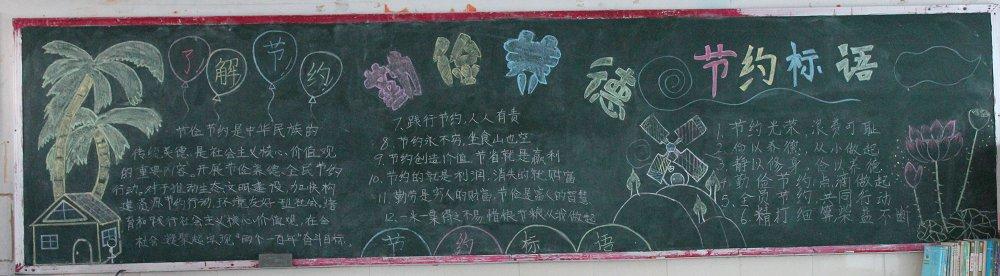 了解节约
节俭节约是中华民族的
传统美德,是社会主义核心价值观
的重要内容。开展节俭养德全民节约
行动,对于推动生态文明建设,加快构
建资源节约行动,环境友好型社会,培
育和践行社会主义核心价值观,在全
社会凝聚起实现"两个一百年"奋斗目标.
勤俭养德
7、践行节约,人人有责
8、节约永不穷,坐食山也空
9、节约创造价值,节省就是赢利
10、节约的就是利润,消失的就是财富
11、勤劳是穷人的财富,节俭是富人的智慧
12、一米一粟得之不易,惜粮节粮从谁做起
节约标语
节约标语
1、节约光荣,浪费可耻
2、俭以养德,从小做起
3、静以修身,俭以养德
4、勤俭节约,点滴做起
5、全员节约,共同行动
6、精打细算,聚盈不断